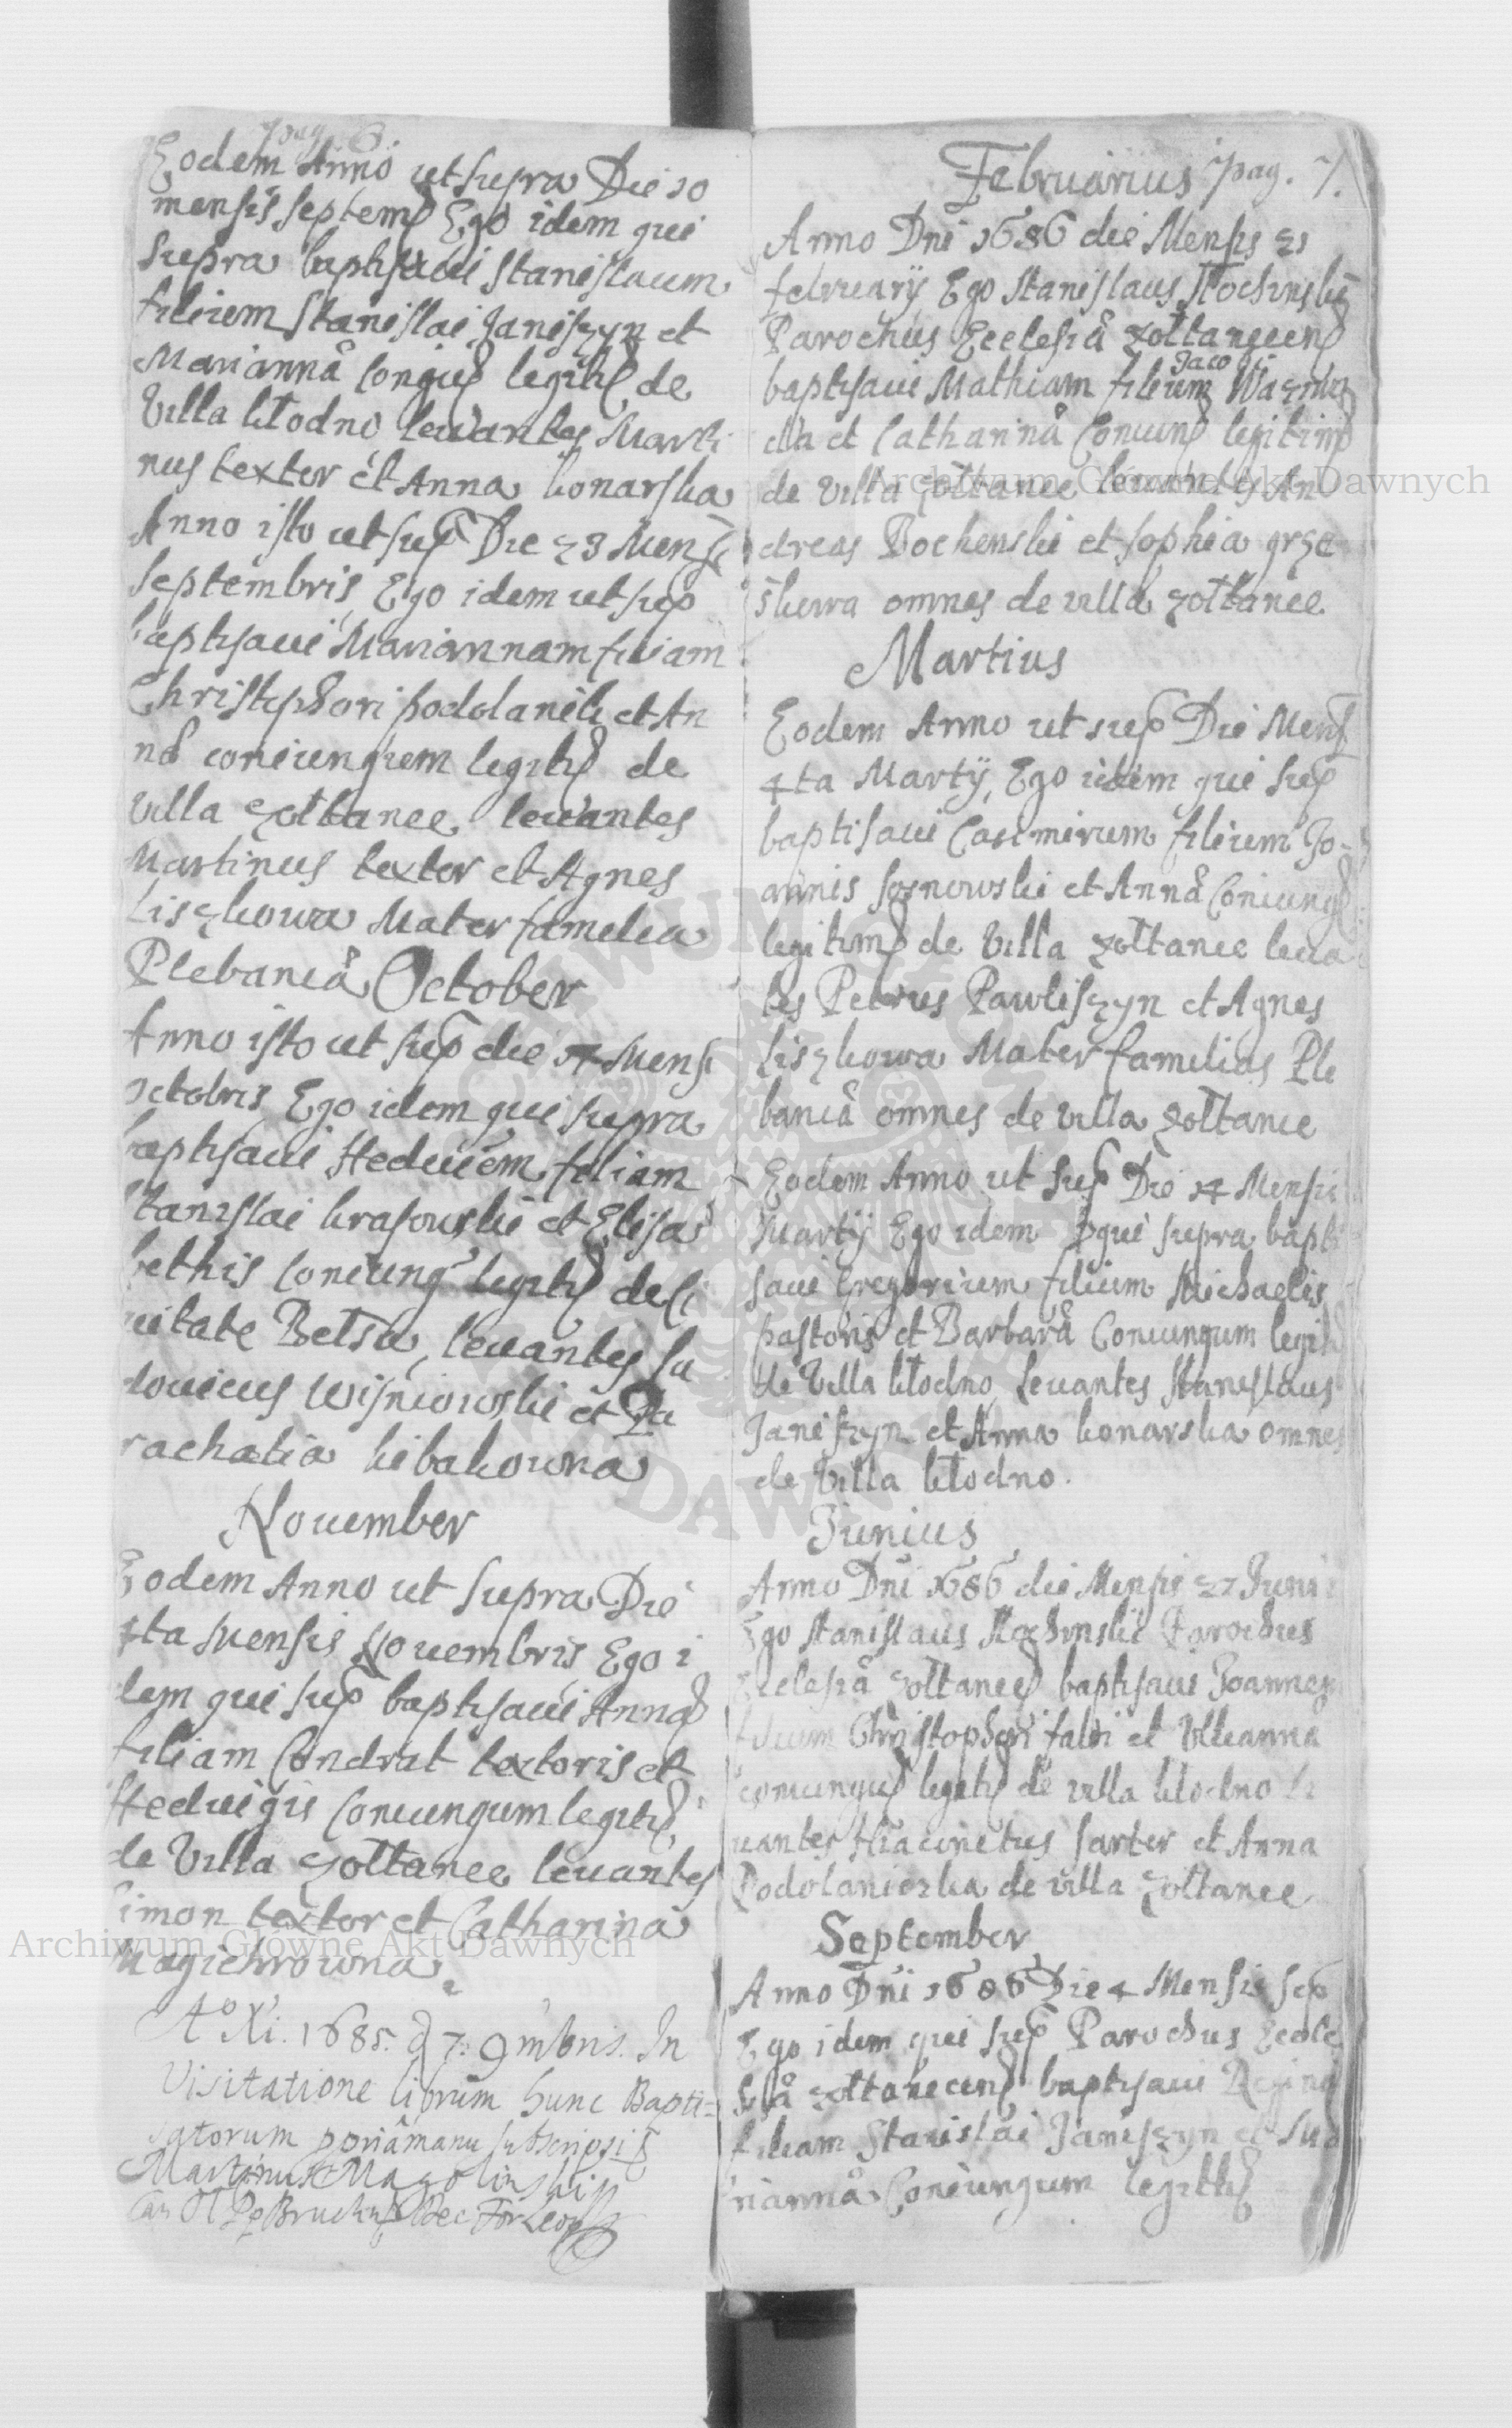 pag. 6.
Eodem Anno ut supra Die 10
mensis septemb Ego idem qui
supra baptisaui Stanislaum
filium Stanislai Janiszyn et
Marianna coniug legit de
Villa Kłodno leuantes Marti
nus textor et Anna Konarska
Anno isto ut sup Die 23 Mensi
septembris Ego idem ut sup
baptisaui Mariannam filiam
Christophori podolanik et An
na coniungium legit de
Villa Zołtance leuantes
Martinus textor et Agnes
Liszkowa Mater familia
Plebania October
Anno isto ut sup die 14 Mensi
octobris Ego idem qui supra
baptisaui Heduiem filiam
Stanislai Krasowski et Elisa
bethis Coniung legit de Ci
uitate Bełsa, leuantes Lu
douicus Wisniowski et Pa
rachatia Kibakowna
Nouember
Eodem Anno ut supra Die
4ta mensis Nouembris Ego i
dem qui sup baptisaui Anna
filiam Condrat textoris et
Heduigis Coniungum legit
de Villa Zołtance leuantes
Simon textor et Catharina
Magierowna
Ao Xi. 1685. d 7: 9mbris. In
Visitatione librum hunc Bapti=
satorum pp̃riâ manu subscripsi
Martinus
Can
Februarius pag. 7.
Anno Dni 1686 die Mensis 21
februarij Ego Stanislaus Stochinski
Parochus Ecclesia Zołtanecens
Jaco
baptisaui Mathiam filium
et Catharina Coniung legitim
de Villa Zołtance leuantes An
dreas Bochenski et Sophia grze
skowa omnes de villa Zołtance
Martius
Eodem Anno ut sup Die Mens
4ta Martij, Ego idem qui sup
baptisaui Casimirum filium Jo-
annis Sosnowski et Anna Coniung
legitim de Villa Zołtance leua
tes Petrus Pawliszyn et Agnes
Liszkowa Mater familias Ple
bania omnes de villa Zołtance
Eodem Anno ut sup Die 14 Mensis
Martij Ego idem qui supra bapti
saui Gregorium filium Michaelis
pastoris et Barbara Coniungum legit
de Villa Kłodno Leuantes Stanislaus
Janiszyn et Anna Konarska omnes
de Villa Kłodno.
Junius
Anno Dni 1686 die Mensis 27 Junii
Ego Stanislaus Stochinski Parochus
Ecclesia Zołtanec baptisaui Joannem
filium Christophori fabri et Ulleanna
coniungum legit de villa Kłodno le
uantes Hiacinctus sartor et Anna
Podolaniczka de villa Zołtance
September
Anno Dni 1686 Die 4 Mensis sep
Ego idem qui sup Parochus Eccle
sia Zołtanecens baptisaui Regina
filiam Stanislai Janiszyn et Ma
rianna Coniungum legitti
Archiwum Główne Akt Dawnych
Archiwum Główne Akt Dawnych